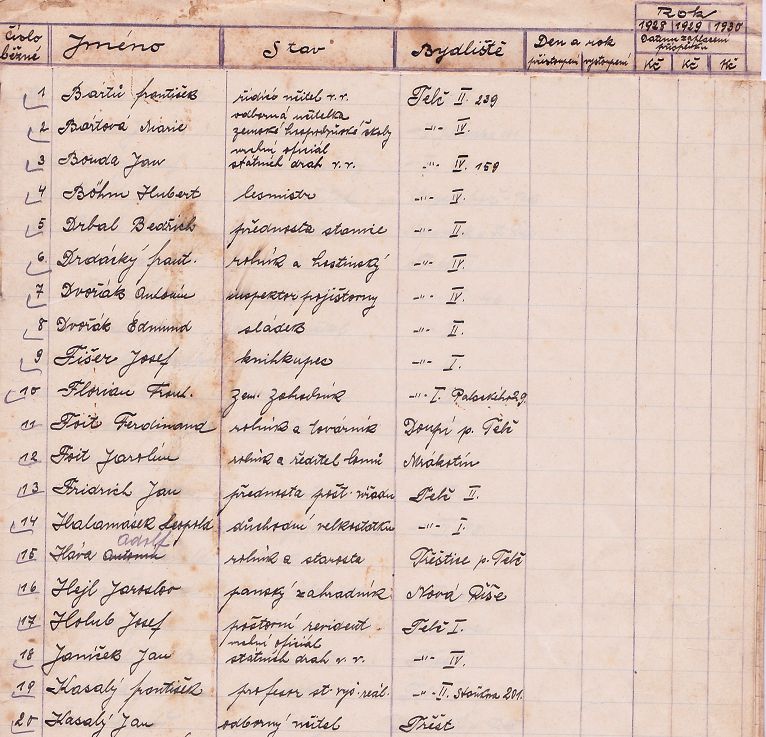 Rok
číslo Jméno Stav Bydliště Den a rok 1928 1929 1930
běžné přistoupení vystoupení Datum zaplacení
příspěvku
Kč Kč Kč
1 Bartů František řídící učitel v.v. Telč II. 239
odborná učitelka
2 Bartová Marie zemské hospodyňské školy -"- IV.
vrchní oficiál
3 Bouda Jan státních drah v.v. -"- IV. 159
4 Böhm Hubert lesmistr -"- IV.
5 Drbal Bedřich přednosta stanice -"- II.
6 Drdácký Frant. rolník a hostinský -"- IV.
7 Dvořák Antonín inspektor pojišťovny -"- IV.
8 Dvořák Edmund sládek -"- II.
9 Fišer Josef knihkupec -"- I.
10 Florian Frant. zem. zahradník -"- I. Palackého 29
11 Foit Ferdinand rolník a továrník Doupí p. Telč
12 Foit Jarolím rolník a ředitel lomů Mrákotín
13 Fridrich Jan přednosta pošt. úřadu Telč II.
14 Halamásek Leopold důchodní velkostatku -"- I.
Adolf
15 Hána Antonín rolník a starosta Třeštice p. Telč
16 Hejl Jaroslav panský zahradník Nová Říše
17 Holub Josef poštovní revident Telč I.
vrchní oficiál
18 Janíček Jan státních drah v.v. -"- IV.
19 Kasalý František profesor st. vyš. reál. -"- II. 201.
20 Kasalý Jan odborný učitel Třešť